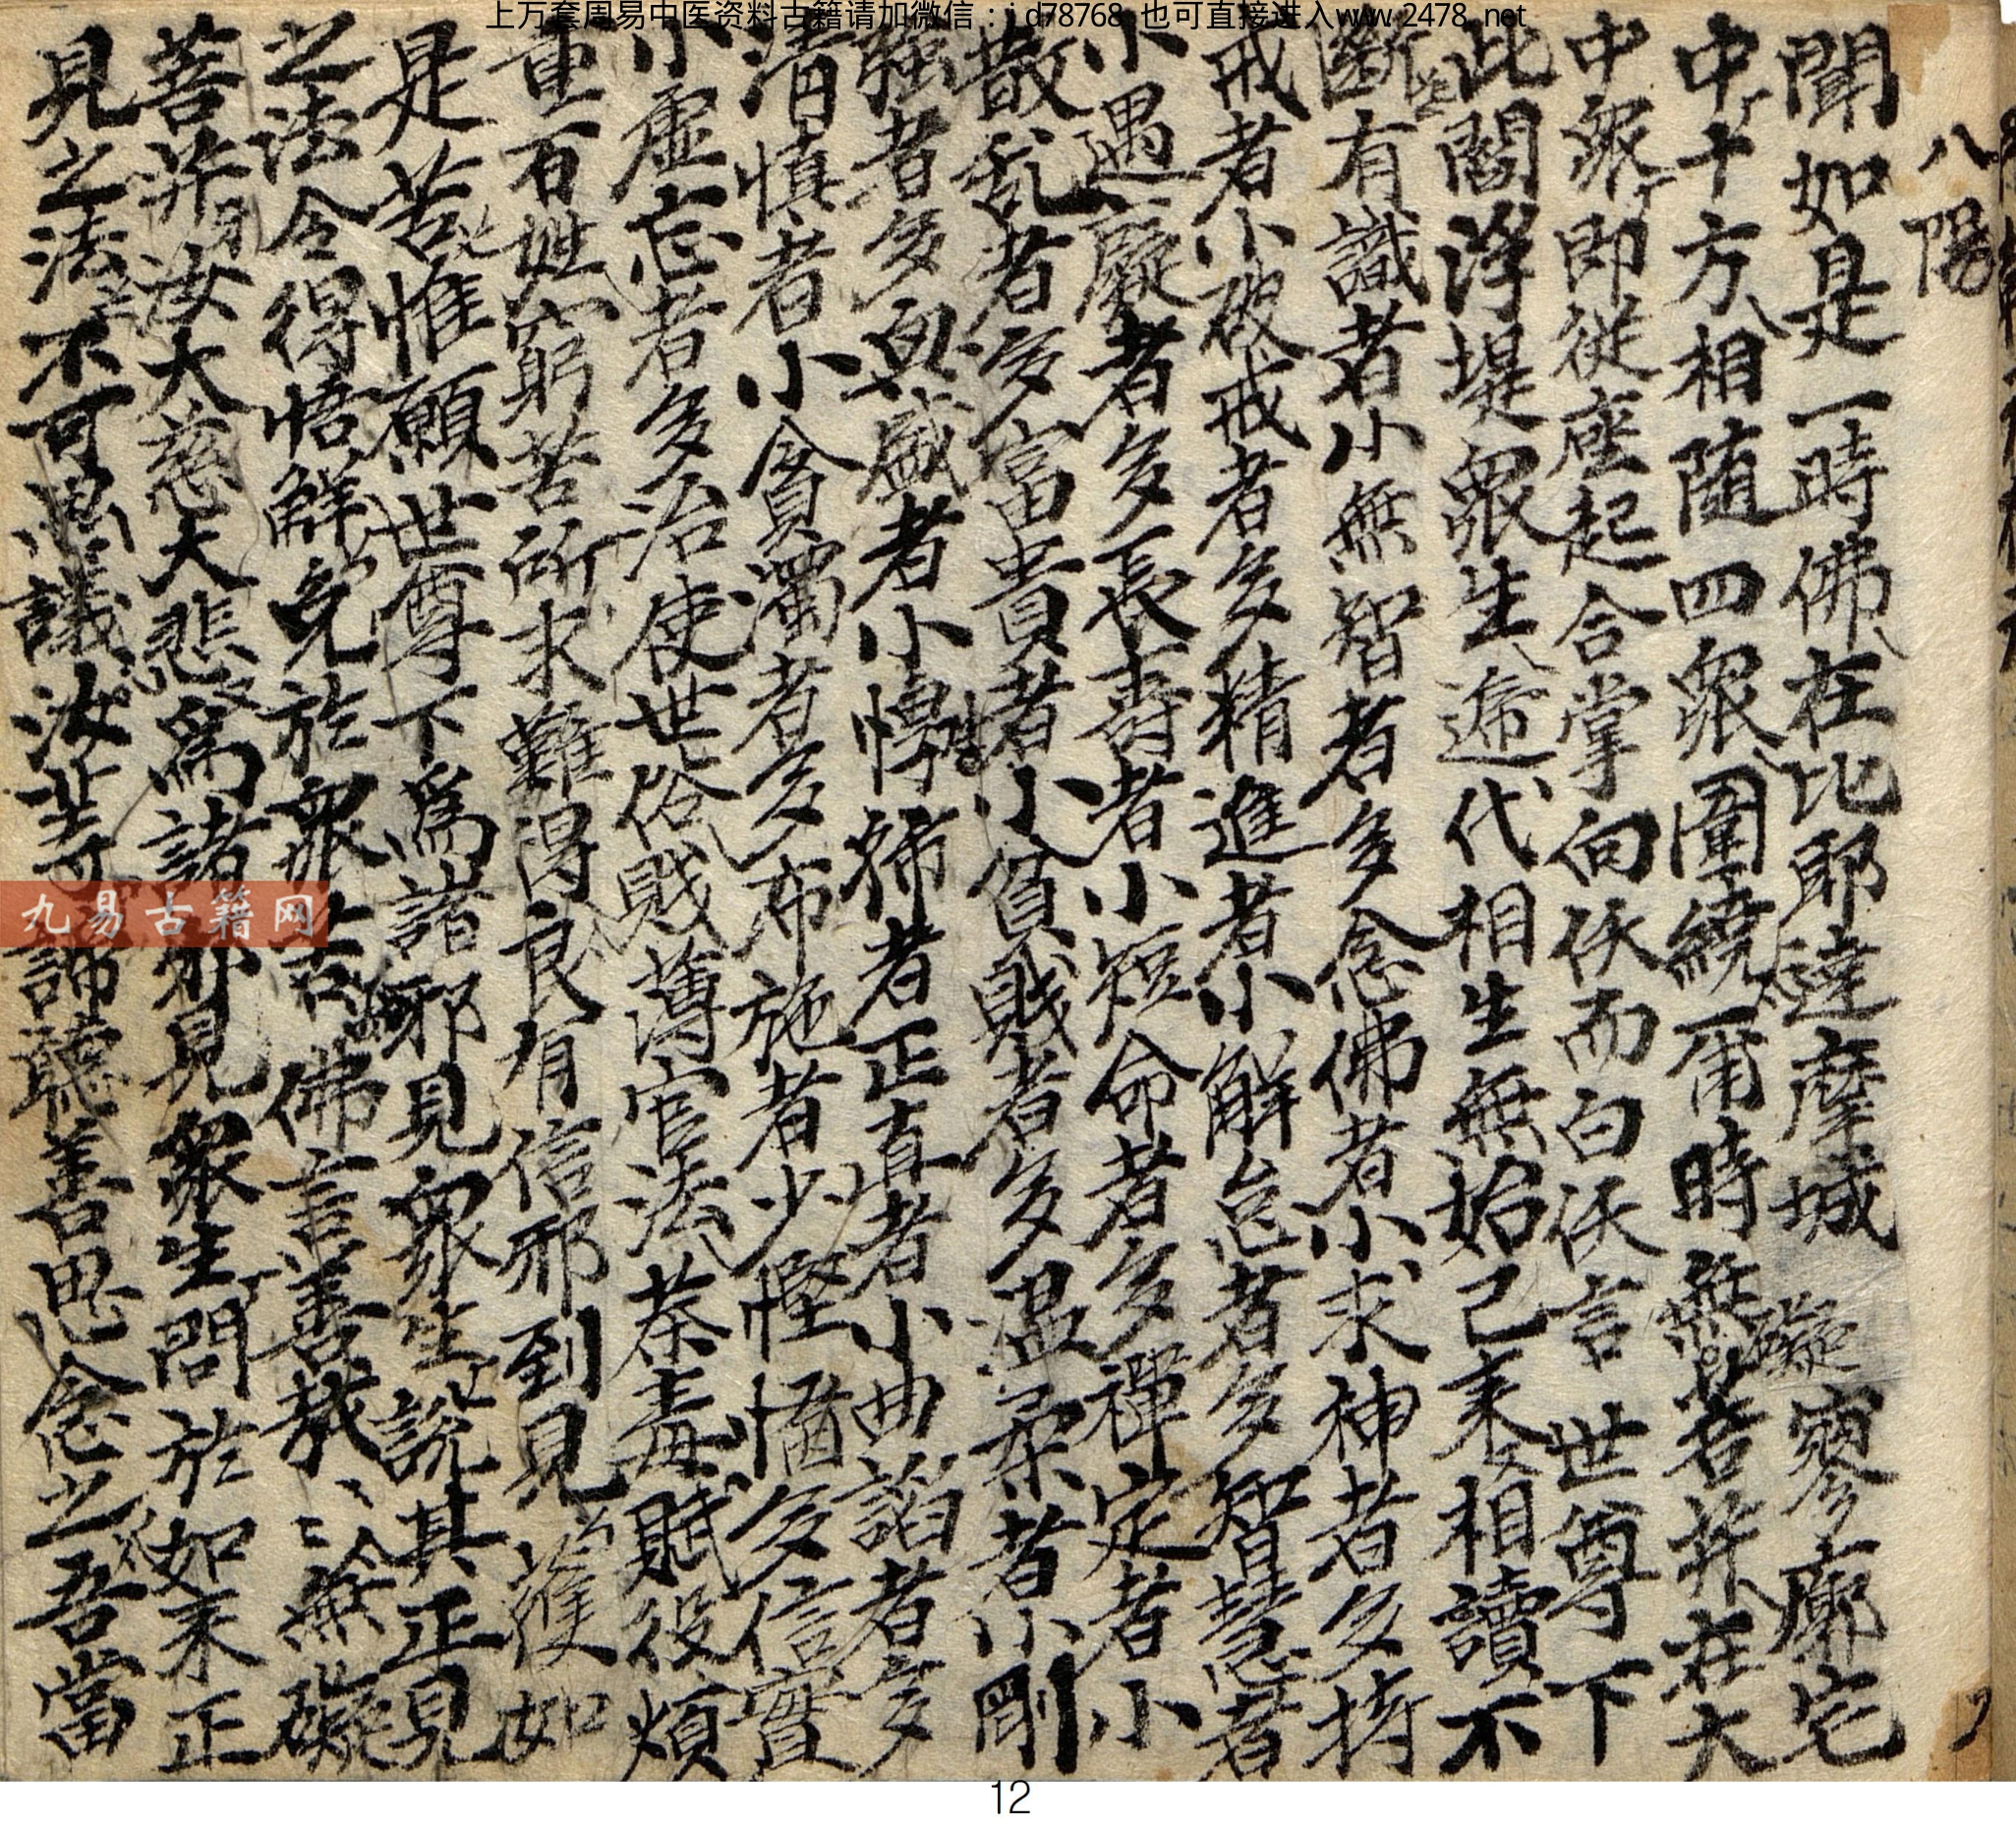 上万套周易中医资料古籍请加微信：jd78768 也可直接进入www.2478.net
八陽
聞如是一時佛在比耶達摩城寥廓宅
中十方相随四眾圍繞甫時無碍菩并在大
中眾即從座起合掌向仸而白仸言世尊下
此閻浮堤眾生遞代相生無始已来相讀不
斷有識者小無智者多念佛者小求神者多持
戒者小破戒者多精進者小解怠者多智慧者
小愚癡者多長壽者小短命者多禪定者小
散乱者多富貴者小貧賎者多温柔者小剛
强者多興盛者小惸㷀者正直者小曲謟者多
清慎者小貪濁者多布施者少慳惜多信實
小虛忘者多治使世俗賎薄官法荼毒賦役煩
重百姓窮苦所求難得良有信邪到見獲如
是苦惟願世尊下為諸邪見眾生說其正見
之法令得悟解免於眾苦佛言善哉、、無礙
菩并汝大慈大悲為諸邪見眾生問於如来正
見之法不可思議汝等諦聽善思念之吾當
九易古籍网
12